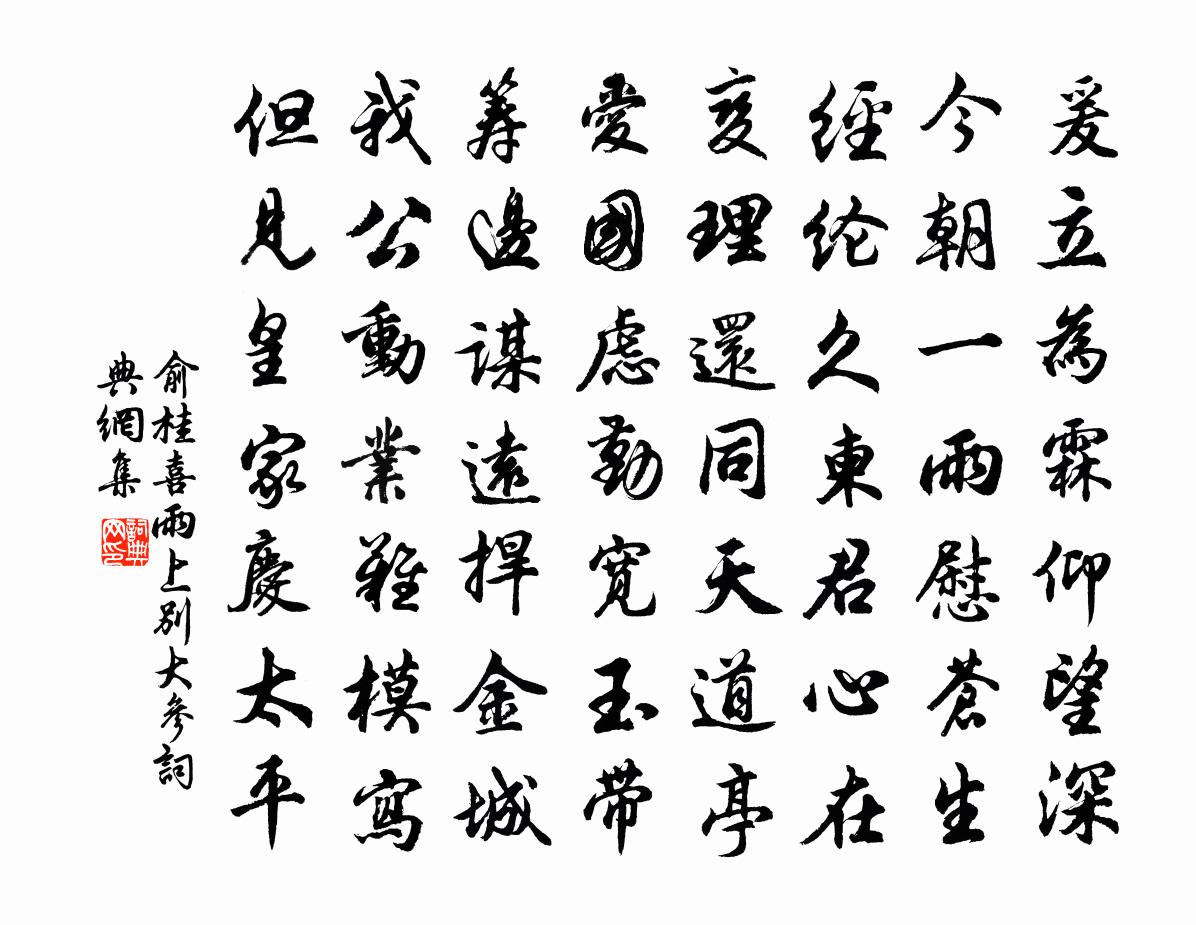 爰立為霖仰望深
今朝一雨慰蒼生
經纶久東君心在
燮理還同天道亭
愛國虑勤宽玉带
籌邊謀遠捍金城
我公動業難模寫
但見皇家慶太平
俞桂喜雨上别大參詞
典網集
詞典网印